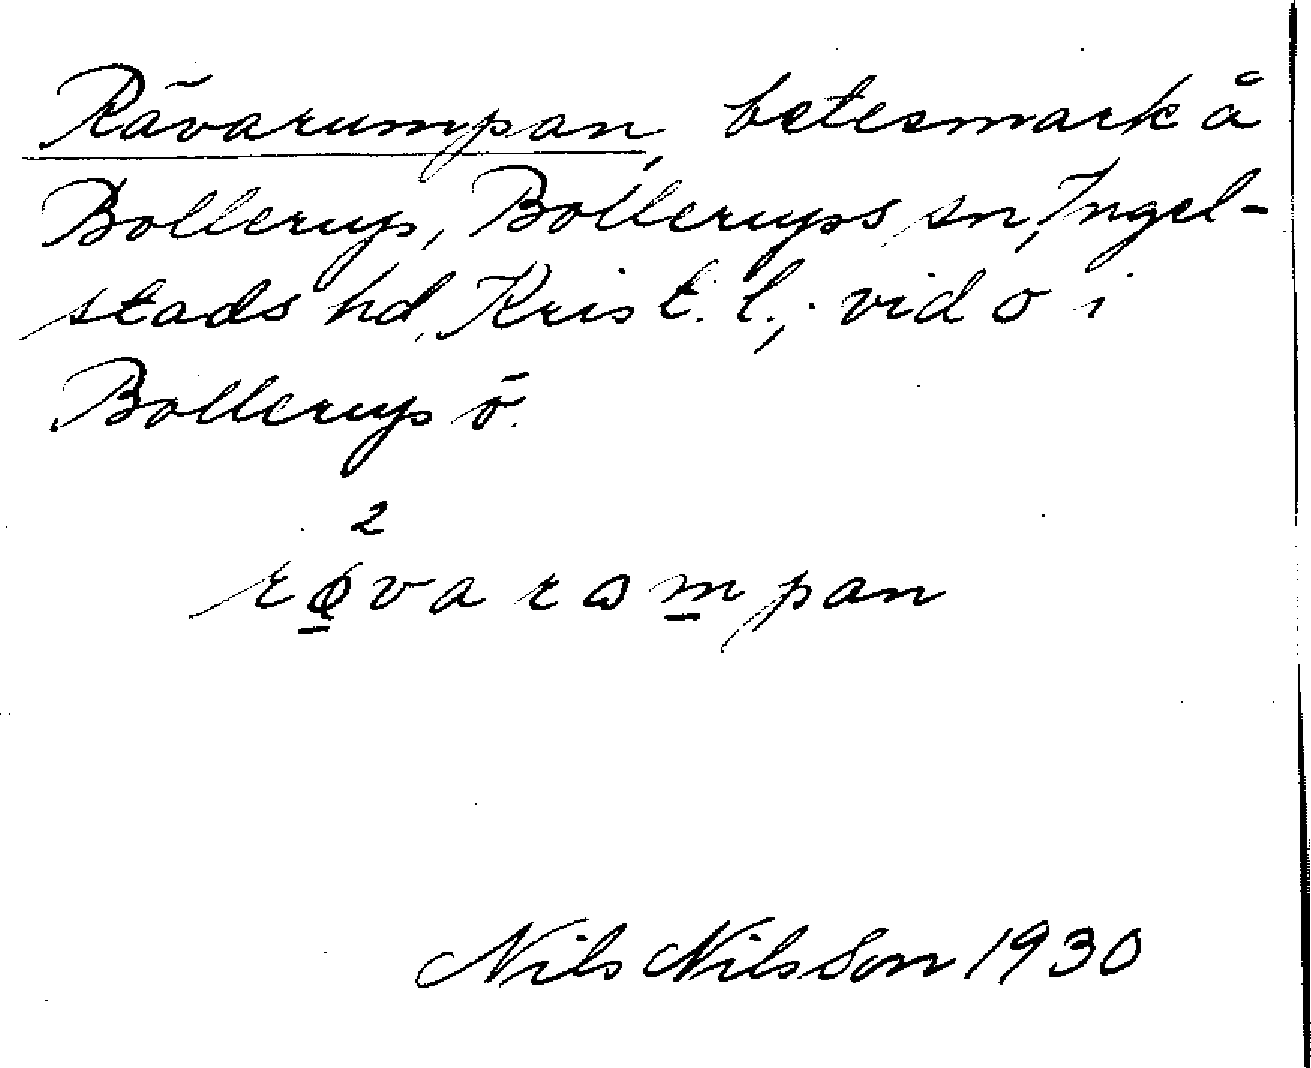 Rävarumpan, betesmark å
Bollerup, Bollerups sn, Ingel-
stads hd, Krist. l.; vid o i
Bollerup ö.
2
rǫ̈varɷmpan
Nils Nilsson 1930